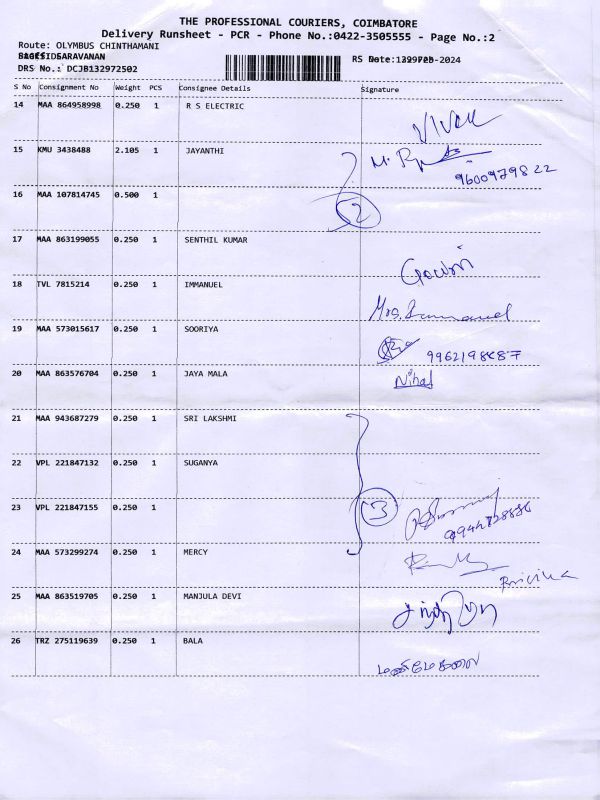 THE PROFESSIONAL COURIERS, COIMBATORE
Delivery Runsheet - PCR - Phone No.:0422-3505555 - Page No.:2
Route: OLYMBUS CHINTHAMANI
SARAVANAN
DRS No.: DCJB132972502
S No Consignment No Weight PCS Consignee Details Signature
14 MAA 864958998 0.250 1 R S ELECTRIC
15 KMU 3438488 2.105 1 JAYANTHI
9600979822
16 MAA 107814745 0.500 1
2
17 MAA 863199055 0.250 1 SENTHIL KUMAR
Gowri
18 TVL 7815214 0.250 1 IMMANUEL
Mrs. Immanuel
19 MAA 573015617 0.250 1 SOORIYA
20 MAA 863576704 0.250 1 JAYA MALA
Nihal
21 MAA 943687279 0.250 1 SRI LAKSHMI
22 VPL 221847132 0.250 1 SUGANYA
23 VPL 221847155 0.250 1
3
24 MAA 573299274 0.250 1 MERCY
25 MAA 863519705 0.250 1 MANJULA DEVI
26 TRZ 275119639 0.250 1 BALA